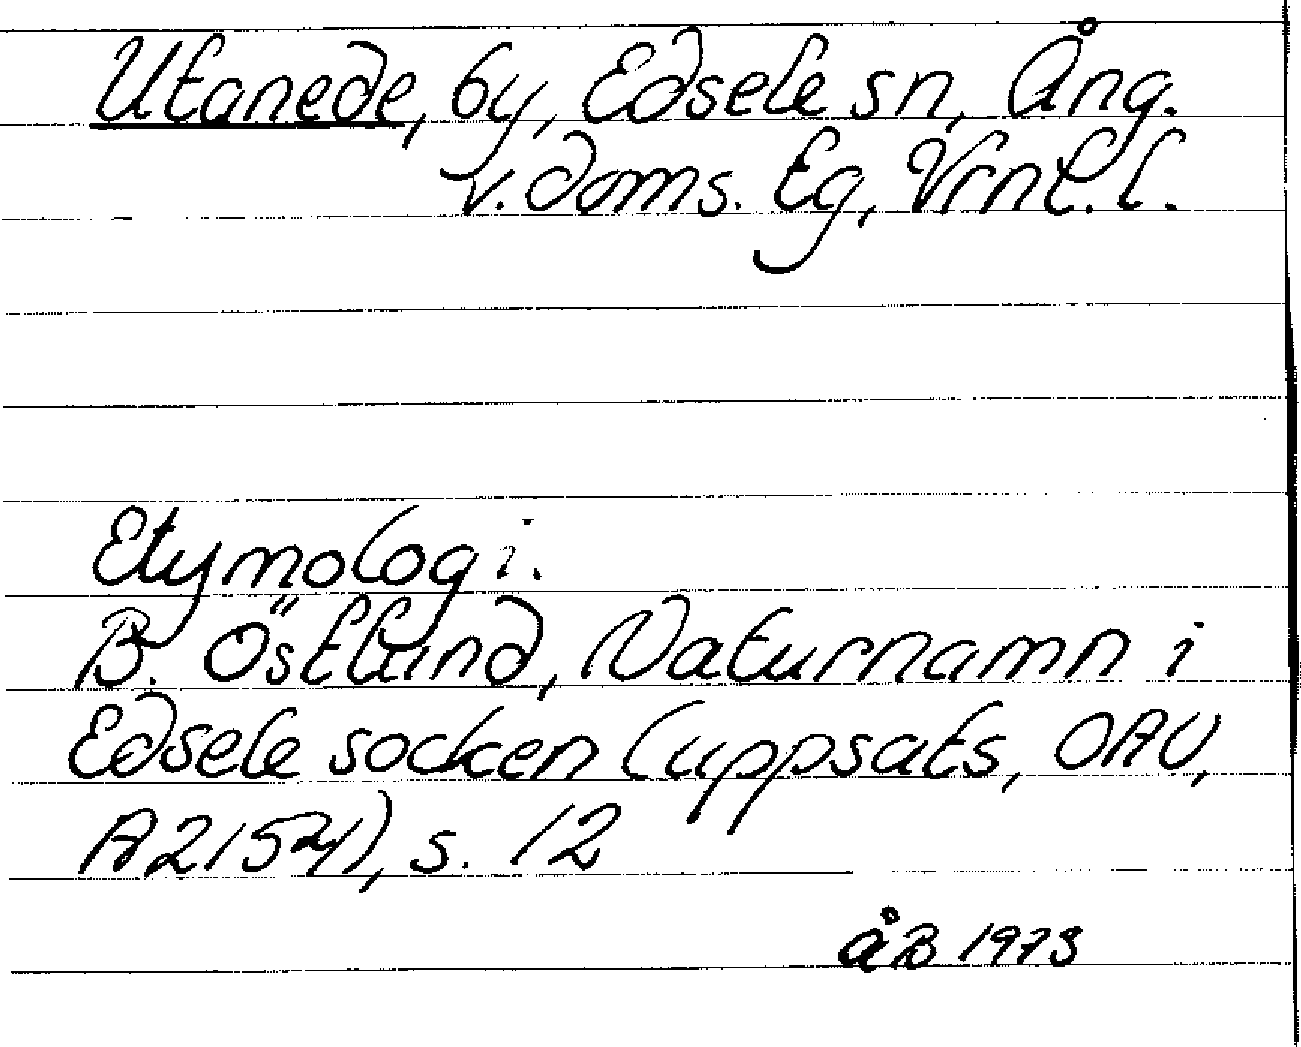 Utanede, by, Edsele sn, Ång.
v. doms. Eg, Vrnl. l.
Etymologi.
B. Östlund, Naturnamn i
Edsele socken (uppsats, OAU,
A2154), s. 12
åB 1973